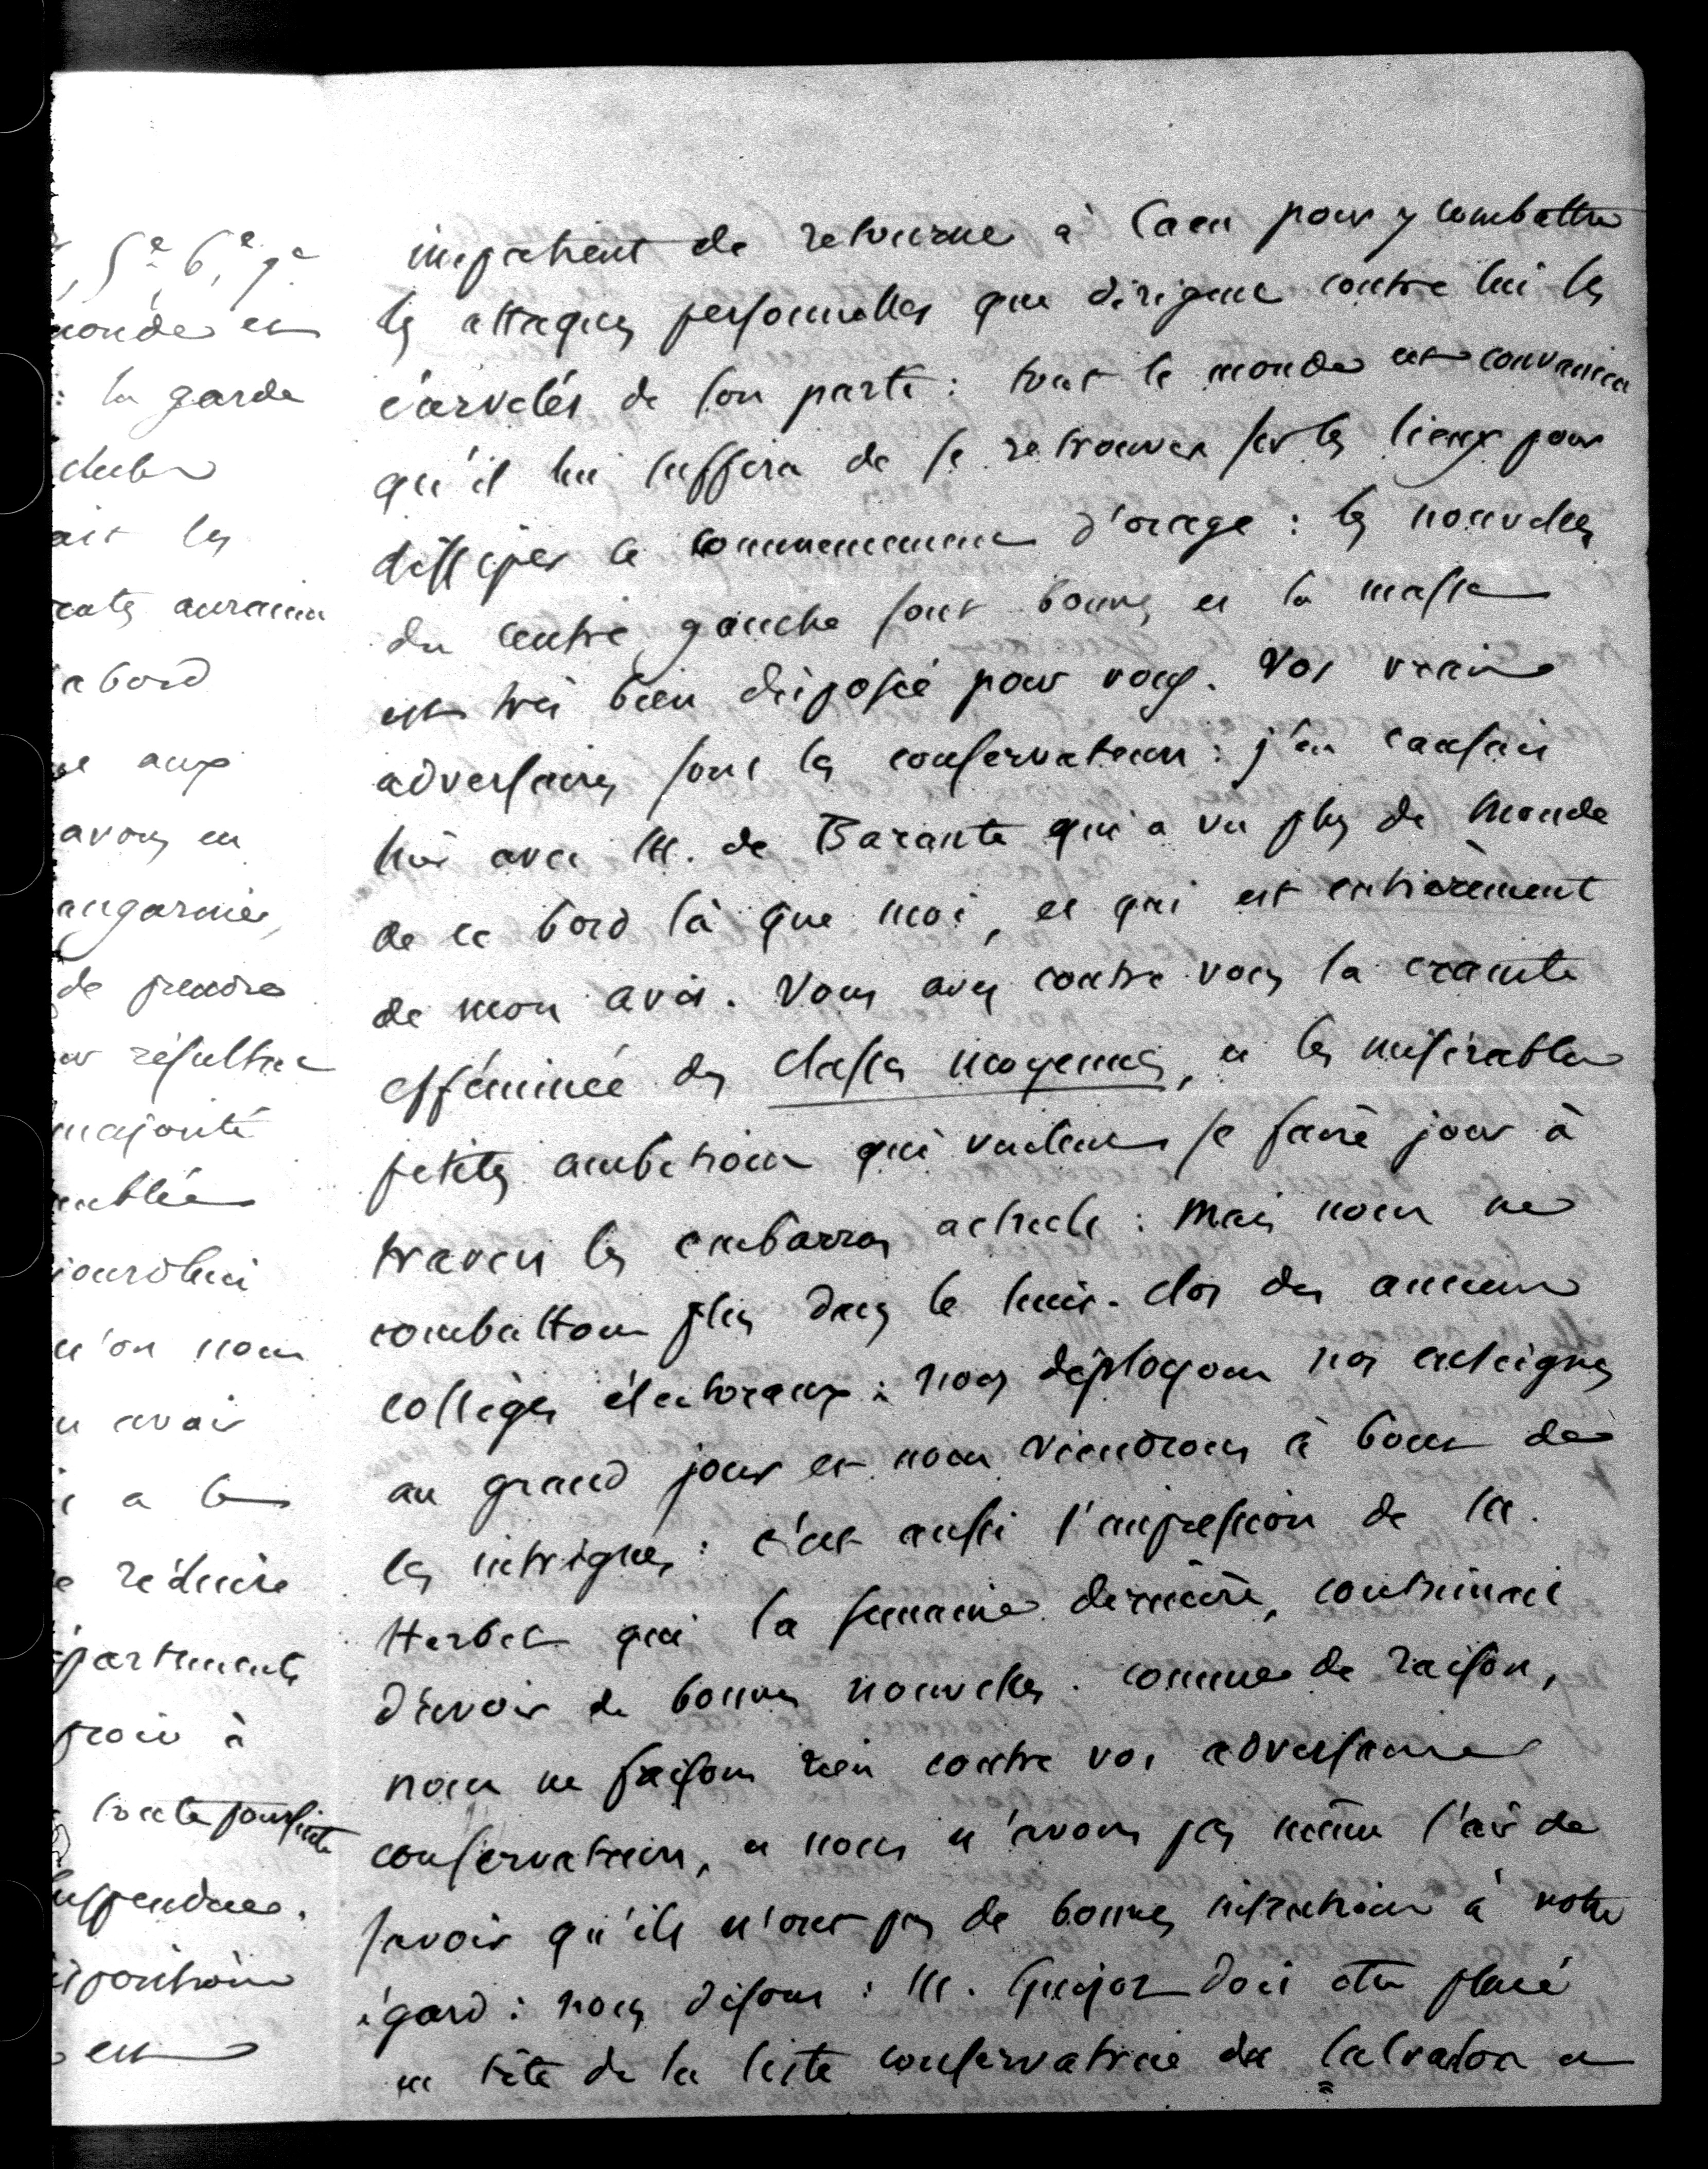 impatient de retourner à Caen pour y combattre
les attaques personnelles que dirigent contre lui les
écervelés de son parti : tout le monde est convaincu
qu'il lui suffira de se retrouver sur les lieux pour
dissiper ce commencement d'orage : les nouvelles
du centre gauche sont bonnes et la masse
est très bien disposée pour vous. Vos vrais
adversaires sont les conservateurs : j'en causais
hier avec M. de Barante qui a vu plus de monde
de ce bord là que moi, et qui est entièrement
de mon avis. Vous avez contre vous la crainte
efféminée des classes moyennes, et les misérables
petites ambitions qui veulent se faire jour à
travers les embarras actuels : mais nous ne
combattons plus dans le huis-clos des anciens
collèges électoraux : nous déployons nos enseignes
au grand jour et nous viendrons à bout de
les intrigues : c'est aussi l'impression de M.
Herbet qui la semaine dernière, continuait
d'avoir de bonnes nouvelles. comme de raison,
nous ne faisons rien contre vos adversaires
conservateurs, et nous n'avons pas même l'air de
savoir qu'ils n'ont pas de bonnes intentions à votre
égard : nous disons : M. Guizot doit être placé
en tête de la liste conservatrice du Calvados et
5e, 6e, 7e
monde et
: la garde
clubs
ait les
auraient
abord
aux
avons eu
angarnier,
de prendre
résultat
majorité
emblée
jourd'hui
qu'on nous
avoir
a le
réduire
épartements
à
toute poursuite
suspendues.
est